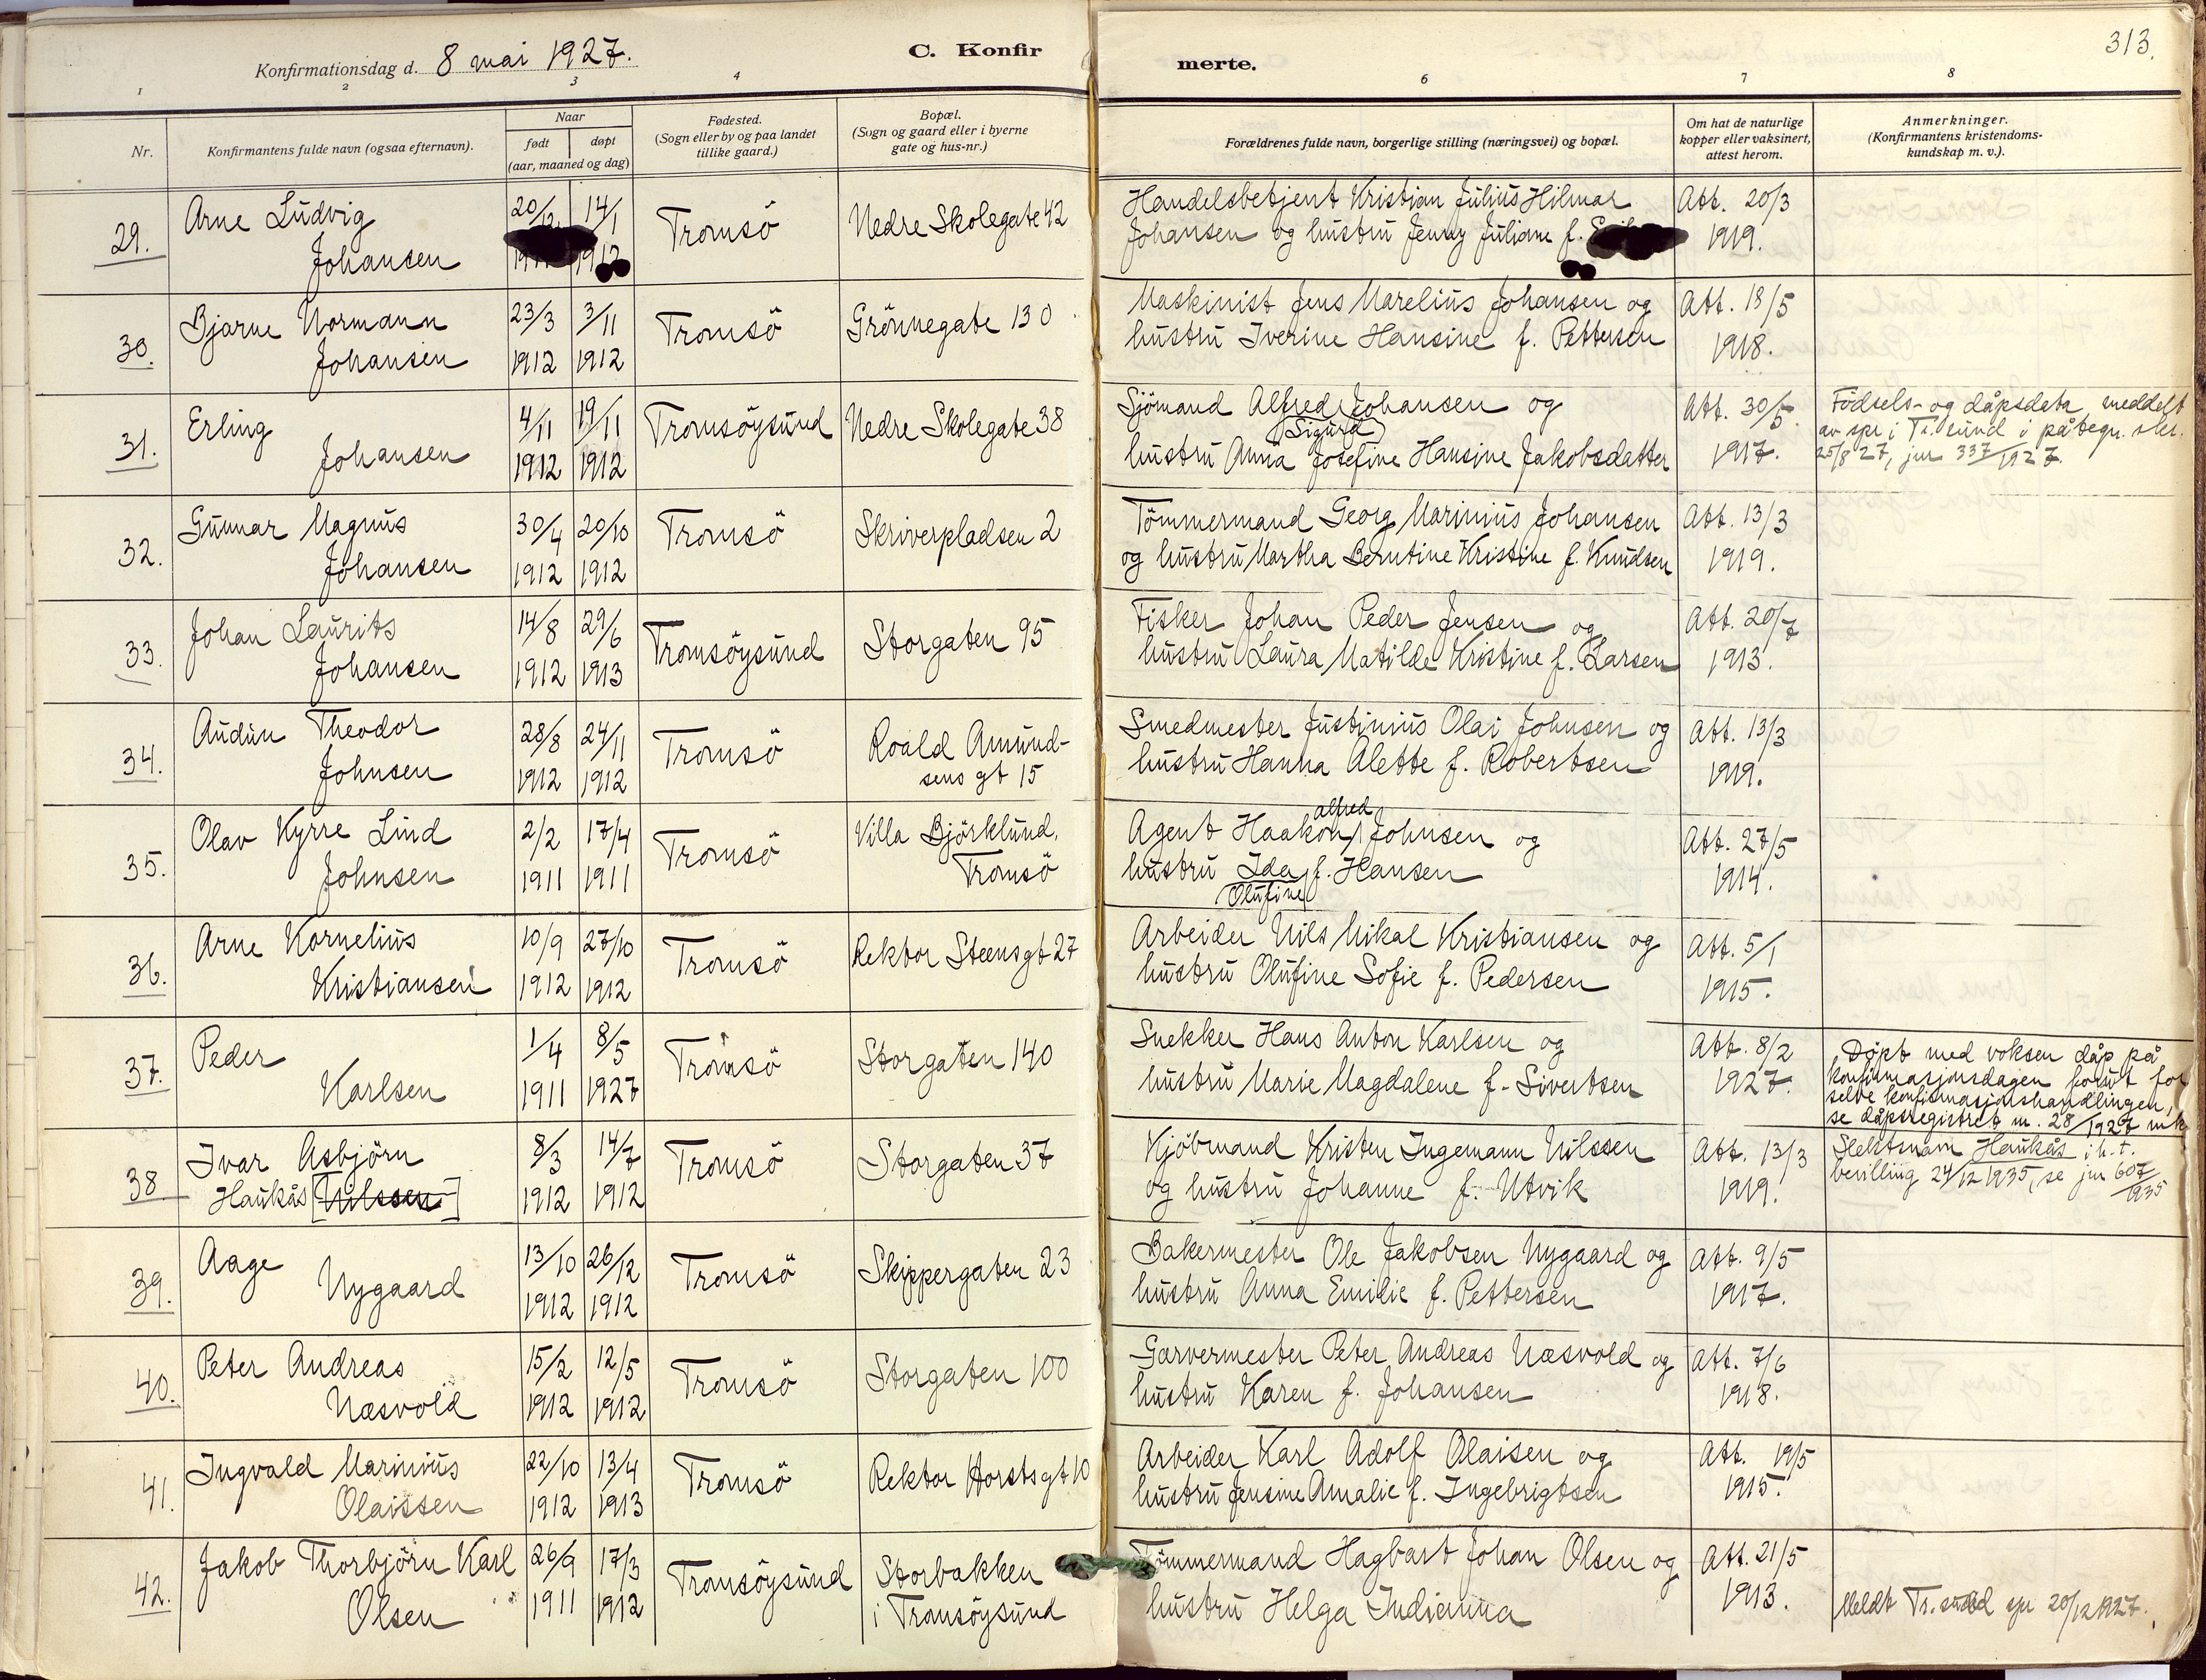 313.
Konfirmationsdag d. 8 mai 1927.
C. Konfir
merte.
1 2 3 4 6 7 8
Nr.
Konfirmantens fulde navn (ogsaa efternavn).
Naar
født døpt
(aar, maaned og dag)
Fødested.
(Sogn eller by og paa landet
tillike gaard.)
Bopæl.
(Sogn og gaard eller i byerne
gate og hus-nr.)
Forældrenes fulde navn, borgerlige stilling (næringsvei) og bopæl.
Om hat de naturlige
kopper eller vaksinert,
attest herom.
Anmerkninger.
(Konfirmantens kristendoms-
kundskap m. v.).
29. Arne Ludvig
Johansen
20/12 14/1
Tromsö
Nedre Skolegate 42
Handelsbetjent Kristian Julius Hilmar
Johansen og hustru Jenny Juliane f.
Att. 20/3
1919.
30. Bjarne Normann
Johansen
23/3 3/11
1912 1912
Tromsö
Grönnegate 130
Maskinist Jens Marelius Johansen og
hustru Iverine Hansine f. Pettersen
Att. 18/5
1918.
31. Erling
Johansen
4/11 19/11
1912 1912
Tromsöysund
Nedre Skolegate 38
Sjömand Alfred Johansen og
Sigurd
hustru Anna Josefine Hansine Jakobsdatter
Att. 30/5
1917.
Födsels- og dåpsdata meddelt
av spr. i Tr.sund i påtegn.
25/8 27, jnr 337/1927.
32. Gunnar Magnus
Johansen
30/4 20/10
1912 1912
Tromsö
Skriverpladsen 2
Tömmermand Georg Marinius Johansen
og hustru Martha Berntine Kristine f. Knudsen
Att. 13/3
1919.
33. Johan Laurits
Johansen
14/8 29/6
1912 1913
Tromsöysund
Storgaten 95
Fisker Johan Peder Jensen og
hustru Laura Matilde Kristine f. Larsen
Att. 20/7
1913.
34. Audun Theodor
Johnsen
28/8 24/11
1912 1912
Tromsö
Roald Amund-
sens gt 15
Smedmester Justinius Olai Johnsen og
hustru Hanna Alette f. Robertsen
Att. 13/3
1919.
35. Olav Kyrre Lind
Johnsen
2/2 17/4
1911 1911
Tromsö
Villa Björklund,
Tromsö
alfred
Agent Haakon Johnsen og
hustru Ida f. Hansen
Olufine
Att. 27/5
1914.
36. Arne Kornelius
Kristiansen
10/9 27/10
1912 1912
Tromsö
Rektor Steensgt 27
Arbeider Nils Mikal Kristiansen og
hustru Olufine Sofie f. Pedersen
Att. 5/1
1915.
37. Peder
Karlsen
1/4 8/5
1911 1927
Tromsö
Storgaten 140
Snekker Hans Anton Karlsen og
hustru Marie Magdalene f. Sivertsen
Att. 8/2
1927.
Döpt med voksen dåp på
konfirmasjonsdagen forut for
selve konfirmasjonshandlingen,
se dåpsregistret nr. 28/1927 mk
38 Ivar Asbjörn
Haukås [Nilssen]
8/3 14/7
1912 1912
Tromsö
Storgaten 37
Kjöbmand Kristen Ingemann Nilssen
og hustru Johanne f. Utvik
Att. 13/3
1919.
Slektsnavn Haukås i h. t.
bevilling 24/12 1935, se jnr 607/1935
39. Aage
Nygaard
13/10 26/12
1912 1912
Tromsö
Skippergaten 23
Bakermester Ole Jakobsen Nygaard og
hustru Anna Emilie f. Pettersen
Att. 9/5
1917.
40. Peter Andreas
Næsvold
15/2 12/5
1912 1912
Tromsö
Storgaten 100
Garvermester Peter Andreas Næsvold og
hustru Karen f. Johansen
Att. 7/6
1918.
41. Ingvald Marinius
Olaissen
22/10 13/4
1912 1913
Tromsö
Rektor Horstsgt 10
Arbeider Karl Adolf Olaisen og
hustru Jensine Amalie f. Ingebrigtsen
Att. 19/5
1915.
42. Jakob Thorbjörn Karl
Olsen
26/9 17/3
1911 1912
Tromsöysund
Storbakken
i Tromsöysund
Tömmermand Hagbart Johan Olsen og
hustru Helga Indianna
Att. 21/5
1913.
Meldt Tr.sund spr 20/12 1927.